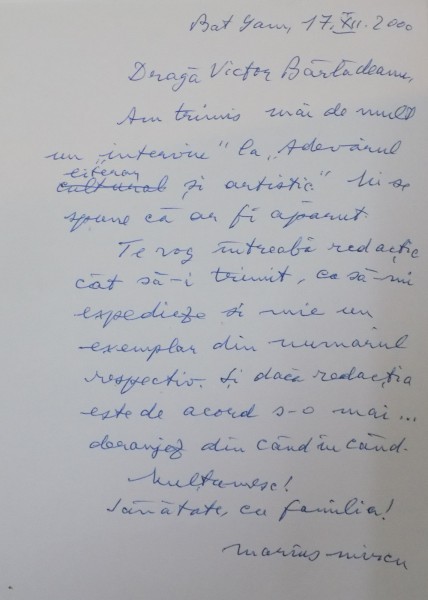 Bat Yam, 17.XII.2000
Dragă Victor Bârlădeanu,
Am trimis mai de mult
un "interviu" la "Adevărul
literar
cultural și artistic" Mi se
spune că ar fi apărut.
Te rog întreabă redacția
cât să-i trimit, ca să-mi
expedieze și mie un
exemplar din numărul
respectiv. Și dacă redacția
este de acord s-o mai...
deranjez din când în când.
Mulțumesc!
Sănătate, cu familia!
marius mircu